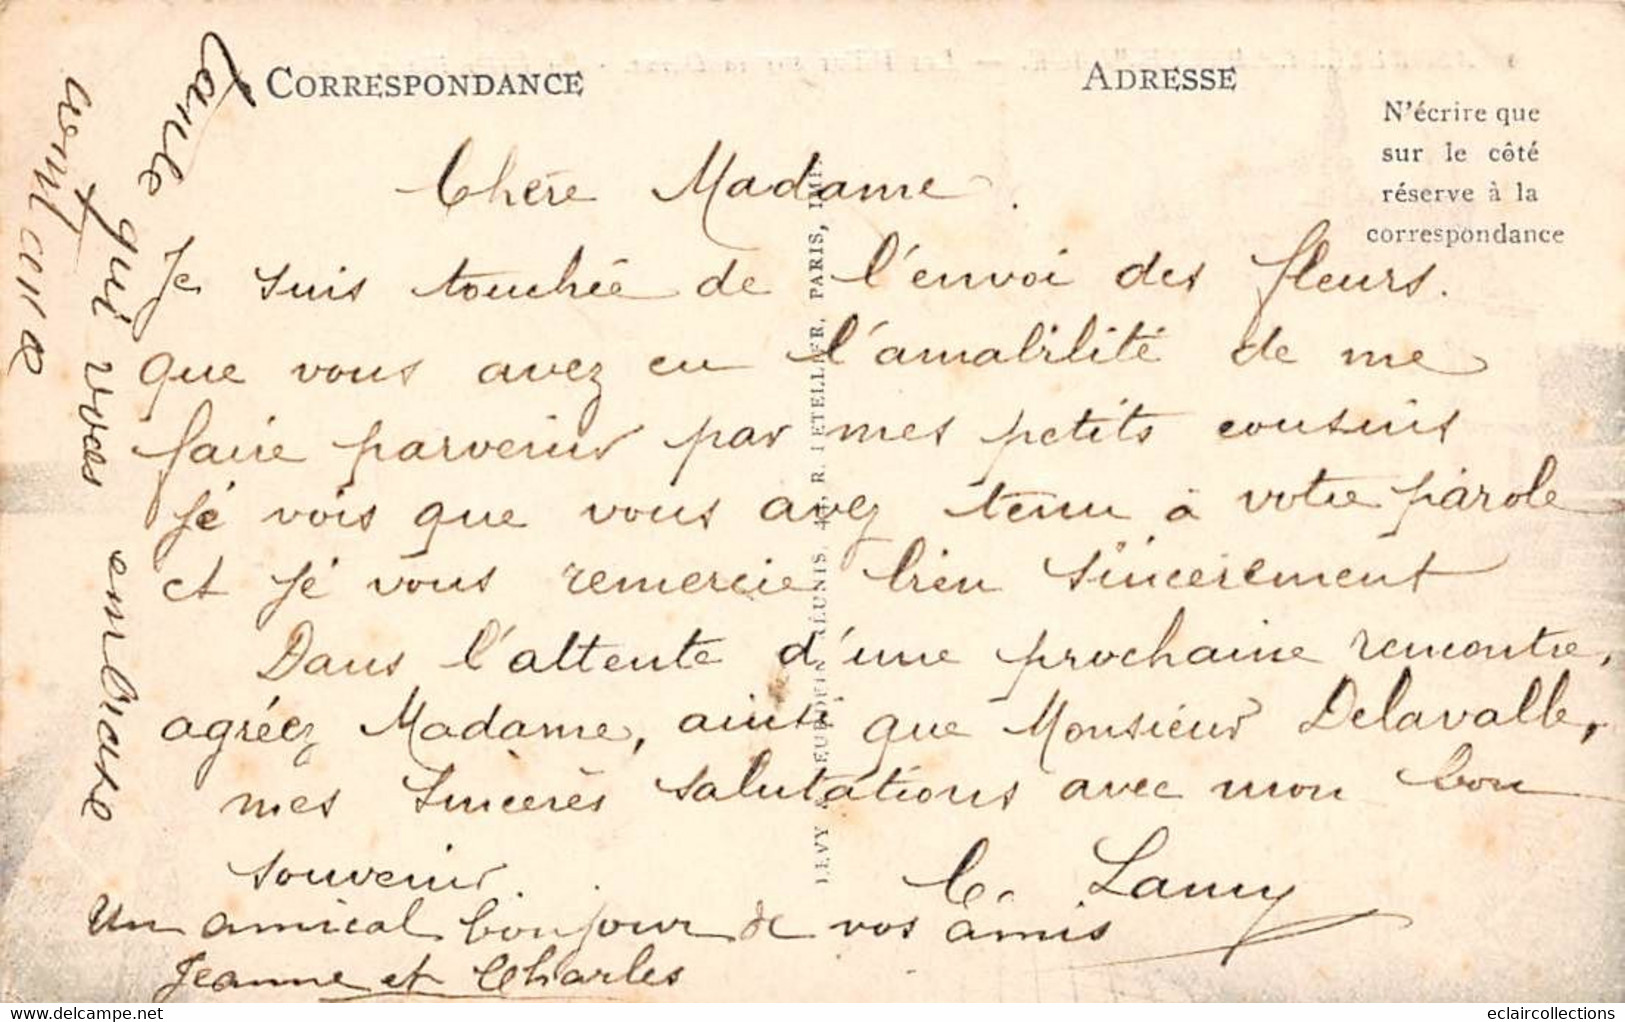 CORRESPONDANCE
ADRESSE
N'écrire que
sur le côté
réserve à la
correspondance
Chère Madame.
Je suis touchée de l'envoi des fleurs.
que vous avez eu l'amabilité de me
faire parvenir par mes petits cousins
Je vois que vous avez tenu à votre parole
et Je vous remercie bien sincèrement
Dans l'attente d'une prochaine rencontre,
agréez Madame, ainsi que Monsieur Delavalle,
mes Sincères salutations avec mon bon
souvenir.
C. Lamy
Un amical bonjour de vos amis
Jeanne et Charles
qui vous embrasse
LEVY & NEURDEIN RÉUNIS, 44, R. LETELLIER, PARIS, IMP.
eclaircollections
www.delcampe.net